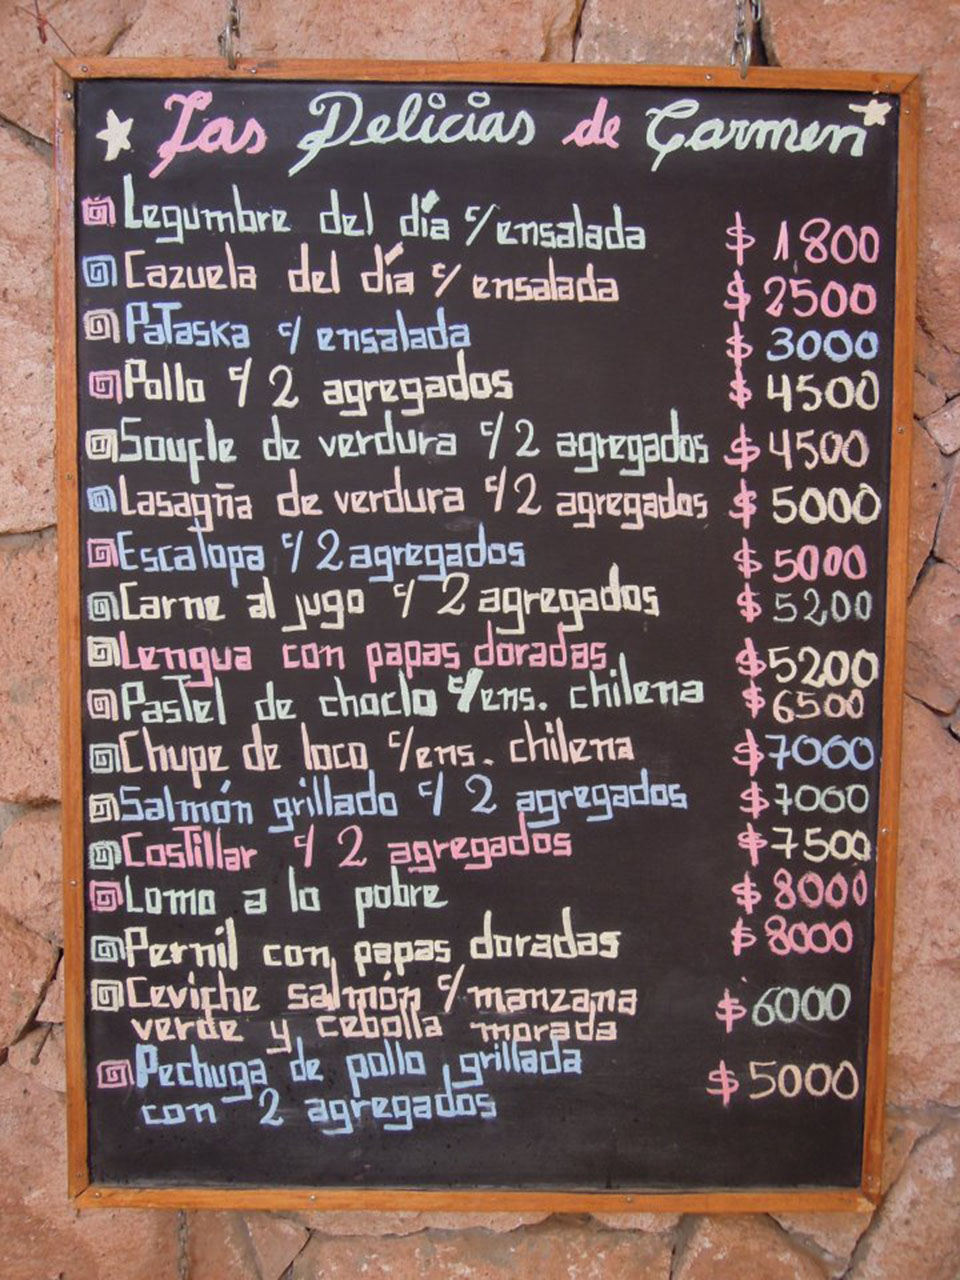 Las Delicias de Carmen
Legumbre del día c/ensalada $1.800
Cazuela del día c/ ensalada $2500
Pataska c/ ensalada $3000
Pollo c/ 2 agregados $4500
Soufle de verdura c/2 agregados $4500
Lasagña de verdura c/2 agregados $5000
Escalopa c/2 agregados $5000
Carne al jugo c/ 2 agregados $5200
Lengua con papas doradas $5200
Pastel de choclo c/ens. chilena $6500
Chupe de loco c/ens. chilena $7000
Salmón grillado c/ 2 agregados $7000
Costillar c/ 2 agregados $7500
Lomo a lo pobre $8000
Pernil con papas doradas $8000
Ceviche salmón c/manzana $6000
verde y cebolla morada
Pechuga de pollo grillada $5000
con 2 agregados